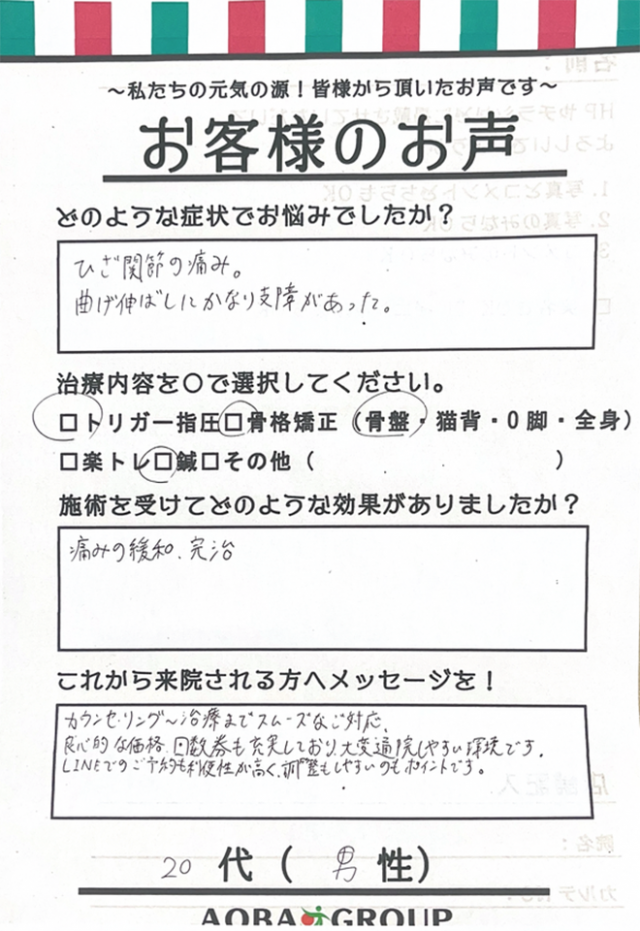 ～私たちの元気の源！皆様から頂いたお声です～
お客様のお声
どのような症状でお悩みでしたか？
ひざ関節の痛み。
曲げ伸ばしにかなり支障があった。
治療内容を〇で選択してください。
□トリガー指圧□骨格矯正（骨盤・猫背・O脚・全身）
□楽トレ□鍼□その他（　　　　　　　　）
施術を受けてどのような効果がありましたか？
痛みの緩和、完治
これから来院される方へメッセージを！
カウンセリング〜治療までスムーズなご対応、
良心的な価格、回数券も充実しており大変通院しやすい環境です。
LINEでのご予約も利便性が高く、調整もしやすいのもポイントです。
20代（男性）
AOBA GROUP